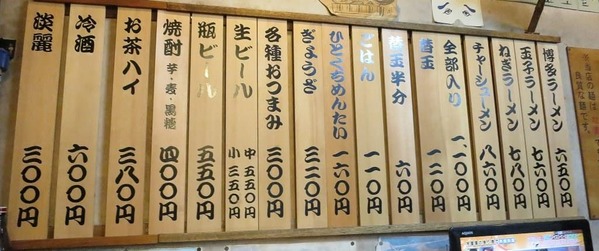 博多ラーメン 六五〇円
玉子ラーメン 七六〇円
ねぎラーメン 七八〇円
チャーシューメン 八六〇円
全部入り 一、一〇〇円
替玉 一二〇円
替玉半分 六〇円
ごはん 一一〇円
ひとくちめんたい 一六〇円
ぎょうざ 三二〇円
各種おつまみ 三〇〇円
生ビール 中 五五〇円
小 三五〇円
瓶ビール 五五〇円
焼酎 芋・麦・黒糖 四〇〇円
お茶ハイ 三八〇円
冷酒 六〇〇円
淡麗 三〇〇円